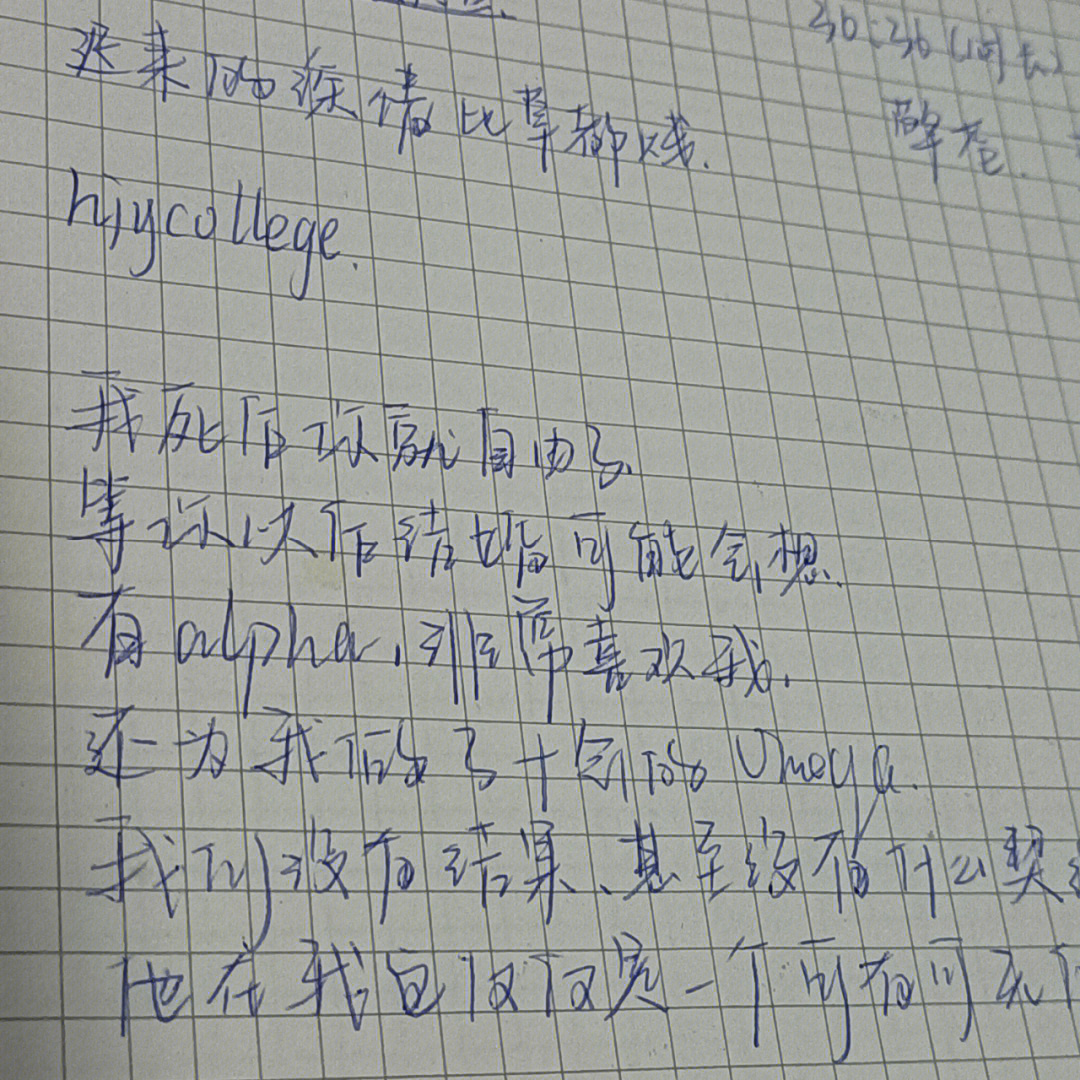 迟来的深情比草都贱.
hjycollege.
我死后你就自由了.
等你以后结婚可能会想.
有alpha,非常喜欢我.
还为我做了十年的Omega.
我们没有结果、甚至没有什么契
他在我这仅仅是一个可有可无